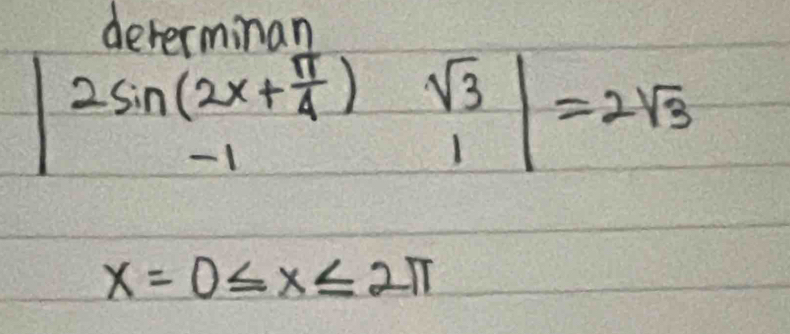 determinan
| 2 sin(2x + π/4) √3 | = 2√3
| -1 1 |
x = 0 ≤ x ≤ 2π